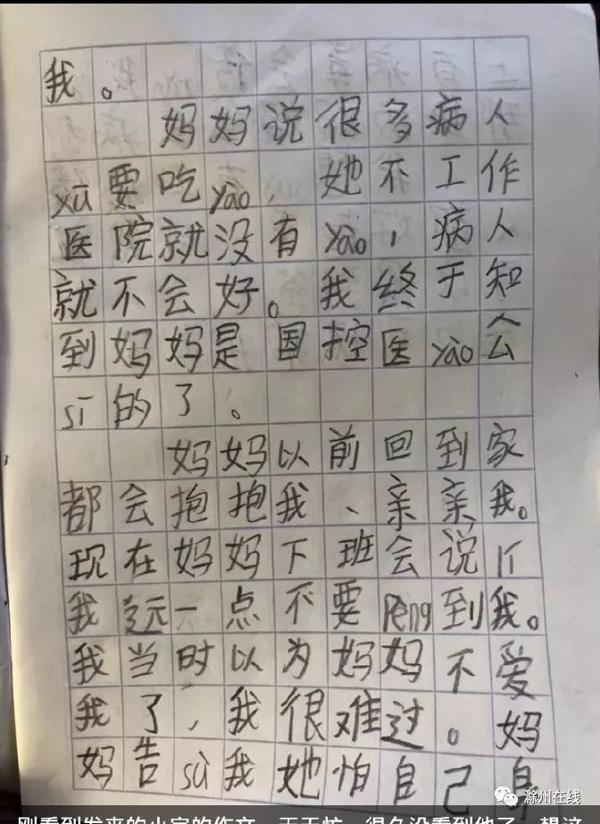 我。
妈妈说很多病人
xū要吃yào，她不工作
医院就没有yào，病人
就不会好。我终于知
到妈妈是国控医yào公
sī的了。
妈妈以前回到家
都会抱抱我、亲亲我。
现在妈妈下班会说
我远一点不要Pèng到我。
我当时以为妈妈不爱
我了，我很难过。妈
妈告sù我她怕自己身
滁州在线